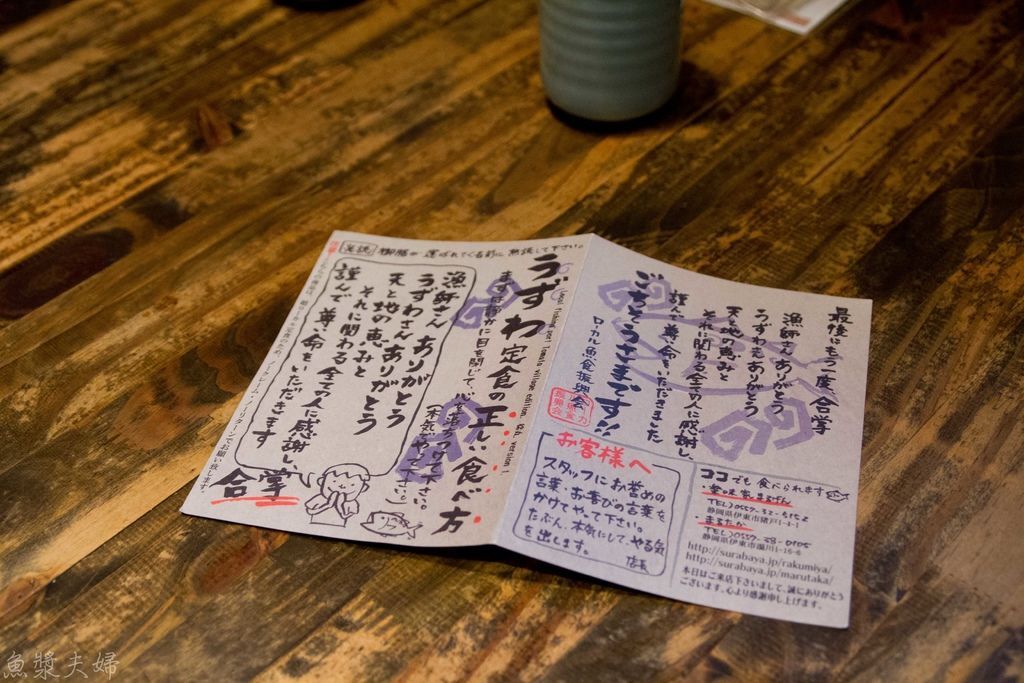 うずわ定食の正しい食べ方
まずは静かに目を閉じて、心を落ちつけて下さい。
(本気でやって下さい。)
漁師さん ありがとう
うずわさん ありがとう
天と地の恵みと
それに関わる全ての人に感謝し、
謹んで尊い命をいただきます
合掌
最後にもう一度 合掌
漁師さんありがとう
うずわさんありがとう
天と地の恵みと
それに関わる全ての人に感謝し、
謹んで尊い命をいただきました
ごちそうさまです!!
ローカル魚食振興会
お客様へ
スタッフにお誉めの
言葉・お喜びの言葉を
かけてやって下さい。
たぶん、本気にして、やる気
を出します。
店長
ココでも食べられます
まるたか
静岡県伊東市猪戸1-4-1
静岡県伊東市湯川1-16-6
http://surabaya.jp/rakumiya/
http://surabaya.jp/marutaka/
本日はご来店下さいまして、誠にありがとう
ございます。心より感謝申し上げます。
魚漿夫婦